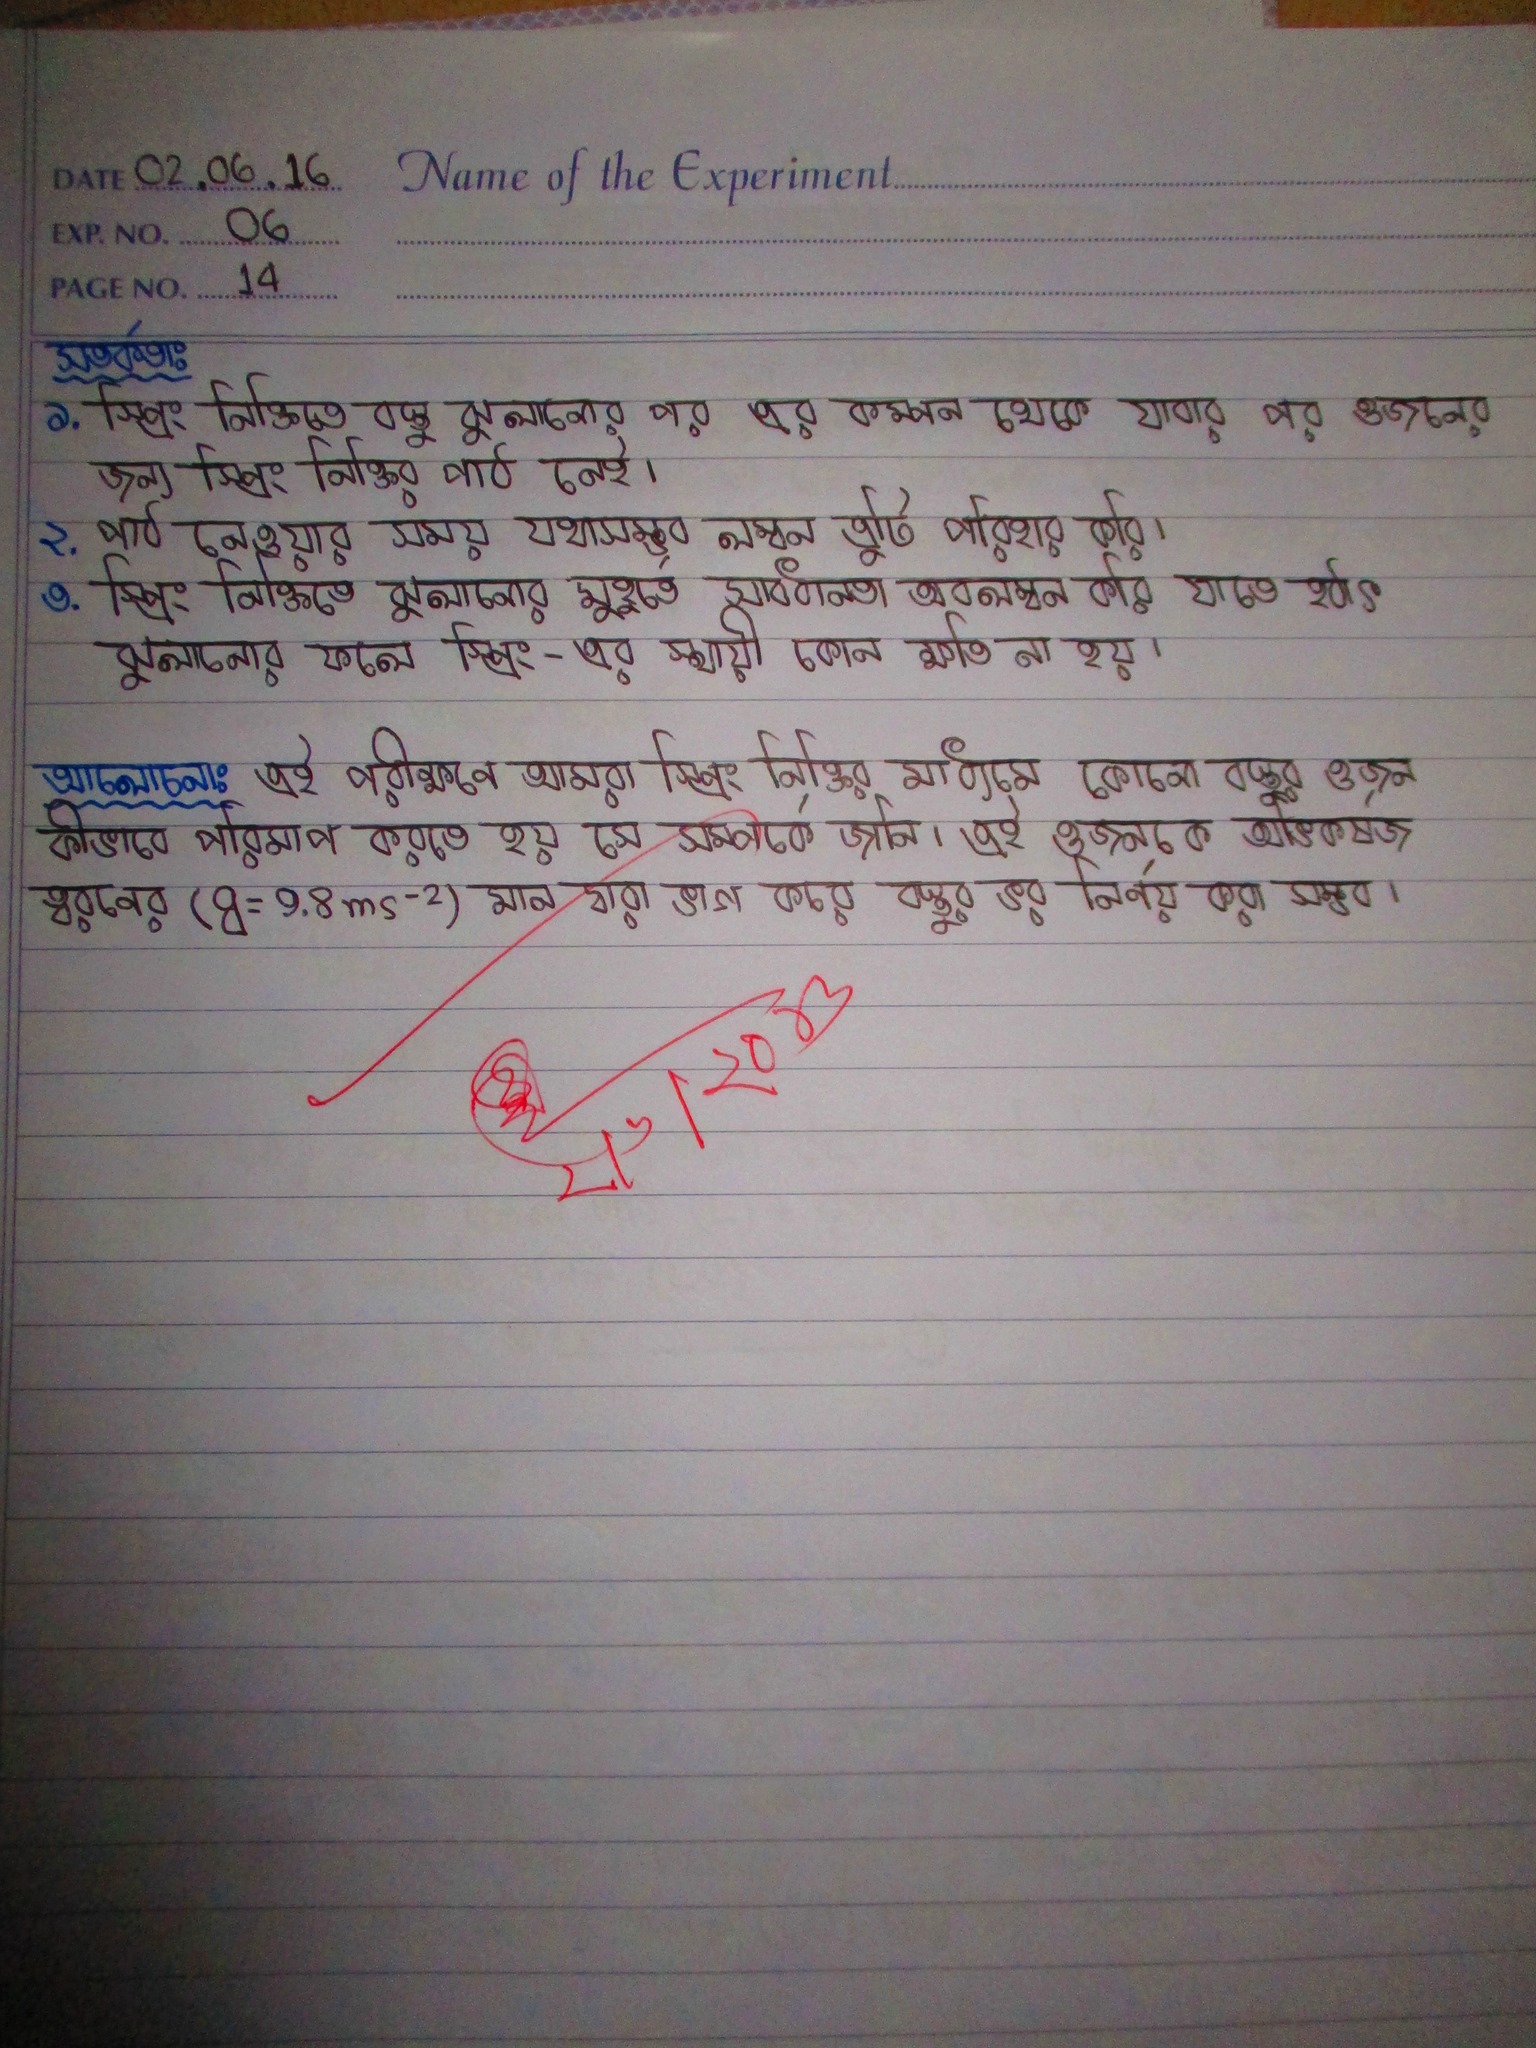 DATE 02.06.16 Name of the Experiment
EXP. NO. 06
PAGE NO. 14
সতর্কতাঃ
১. স্প্রিং নিক্তিতে বস্তু ঝুলানোর পর এর কম্পন থেকে যাবার পর ওজনের
জন্য স্প্রিং নিক্তির পাঠ নেই।
২. পাঠ নেওয়ার সময় যথাসম্ভব লম্বন ত্রুটি পরিহার করি।
৩. স্প্রিং নিক্তিতে ঝুলানোর মুহূর্তে সাবধানতা অবলম্বন করি যাতে হঠাৎ
ঝুলানোর ফলে স্প্রিং-এর স্থায়ী কোন ক্ষতি না হয়।
আলোচনোঃ এই পরীক্ষণে আমরা স্প্রিং নিক্তির মাধ্যমে কোনো বস্তুর ওজন
কীভাবে পরিমাপ করতে হয় সে সম্পর্কে জানি। এই ওজনকে অভিকর্ষজ
ত্বরণের (g = 9.8 ms⁻²) মান দ্বারা ভাগ করে বস্তুর ভর নির্ণয় করা সম্ভব।